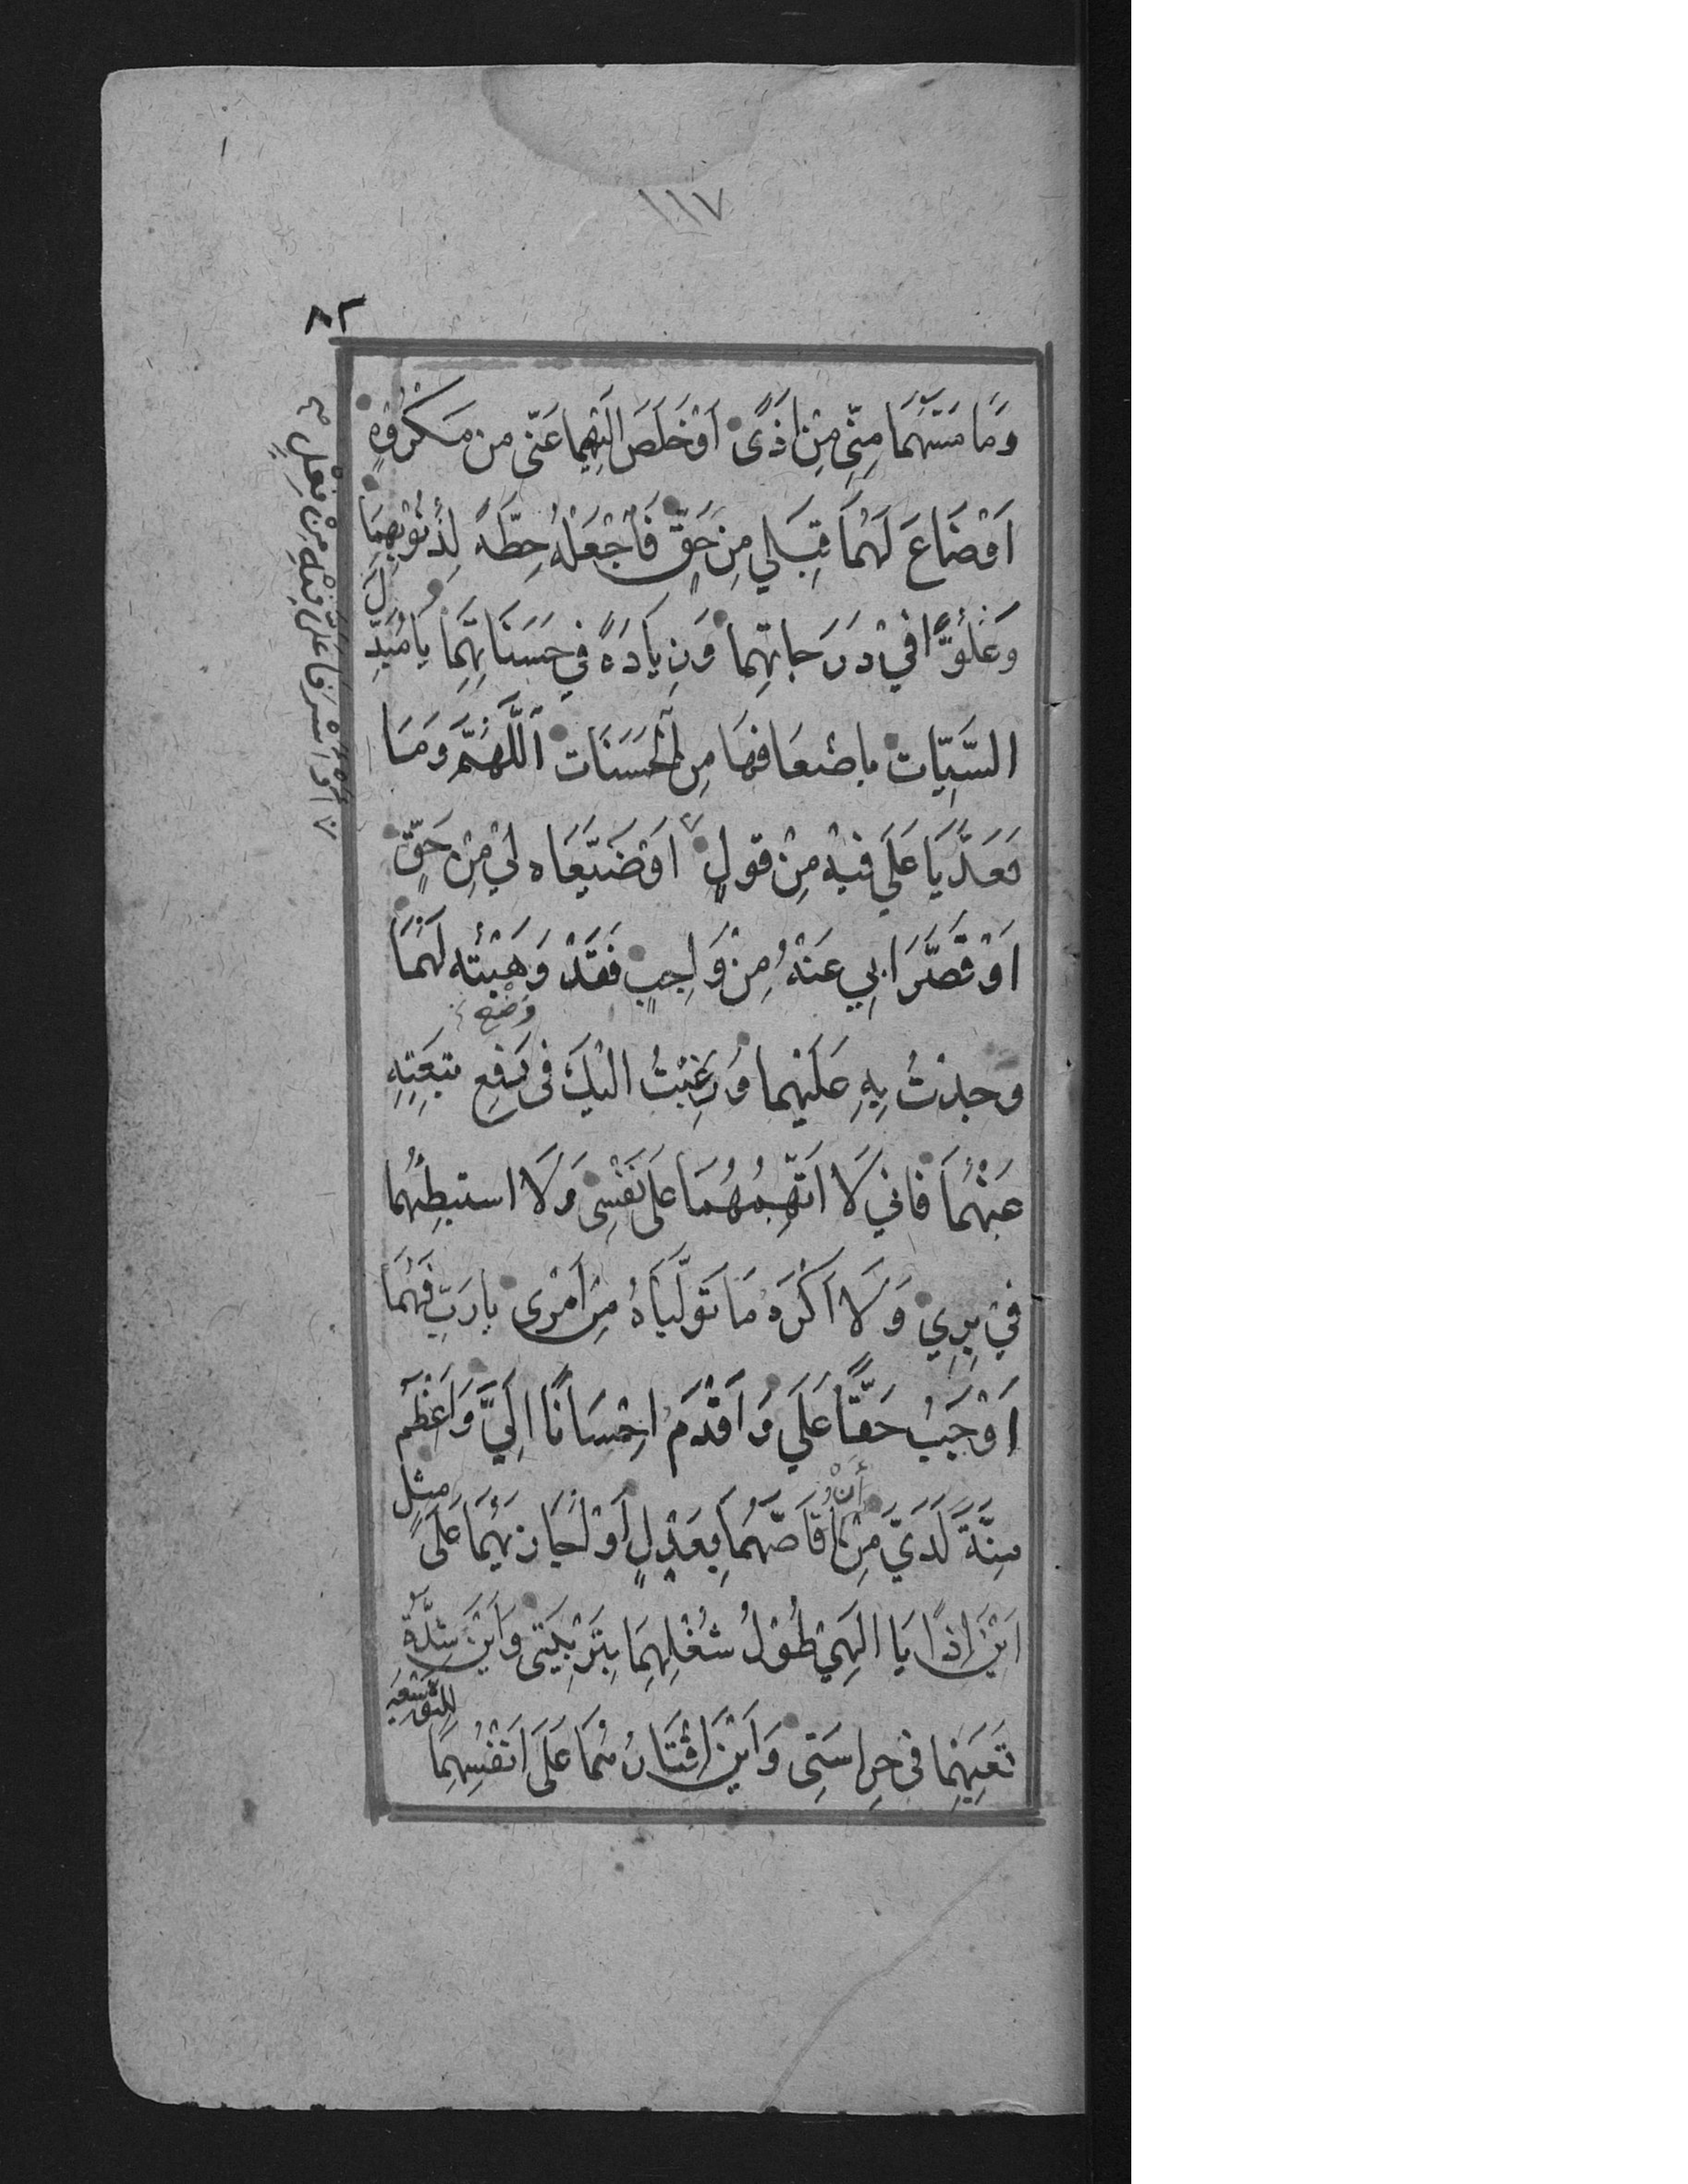 ١١٧
٨٢
وَمَا مَسَّهُمَا مِنِّي مِنْ اَذًى اَوْ خَلَصَ اِلَيْهِمَا عَنّى من مَكْرُوْهٍ
اَوْ ضَاعَ لَهُمَا قِبَلي مِنْ حَقٍّ فَاجْعَلْهُ حِطَّةً لِذُنُوْبِهِمَا
وَعُلُوًّا في دَرَجَاتِهِما وَزِيادَةً في حَسَنَاتِهِمَا يَا مُبَدِّلَ
السَّيِّاتِ باضْعَافِهَا مِن الْحَسَنَات اَللَّهُمَّ وَمَا
تَعَدَّيَا عَلَي فيْهِ مِنْ قولٍ اَوْ ضَيَّعَاه لي مِنْ حَقٍّ
اَوْ اَسْرَفَا عَلَىَّ فِيْهِ مِنْ فِعْلٍ
اَوْ قَصَّرَا بي عَنْهُ مِنْ وَاجِبٍ فَقَدْ وَهَبْتُه لَهُمَا
وَضْعِ
وجدْتُ بِهِ عَلَيْهِما وَرَغِبْتُ اليْكَ فى رَفعِ تبعَتِهِ
عَنْهُمَا فاني لَا اَتّهِمُهُمَا عَلى نَفْسِى وَلَا استبطِئهُما
في بِرِي وَلَا اَكْرَه مَا تَوَلَّيَاهُ مِنْ اَمْرى يا رَبِّ فَهُمَا
اَوْجَبُ حَقًّا عَلَي وَاَقْدَم اِحْسَانًا اِلَيَّ وَاَعْظَم
مِنَّةً لَدَيَّ مِنْ أَنْ اُقَاصَّهُمَا بِعَدْلٍ اَوْ اُجَازِيَهُمَا عَلَى مِثلٍ
اَيْنَ اِذًا يَا اِلَهِيْ طُوْلُ شُغْلِهِمَا بِتَرْبِيَتِى وَاَيْنَ شِدَّةُ
تَعَبِهِمَا فى حِرَاسَتِى وَاَيْنَ اِقْتَارُهُمَا عَلَى اَنْفُسِهِمَا للِتَوْسِعَةِ